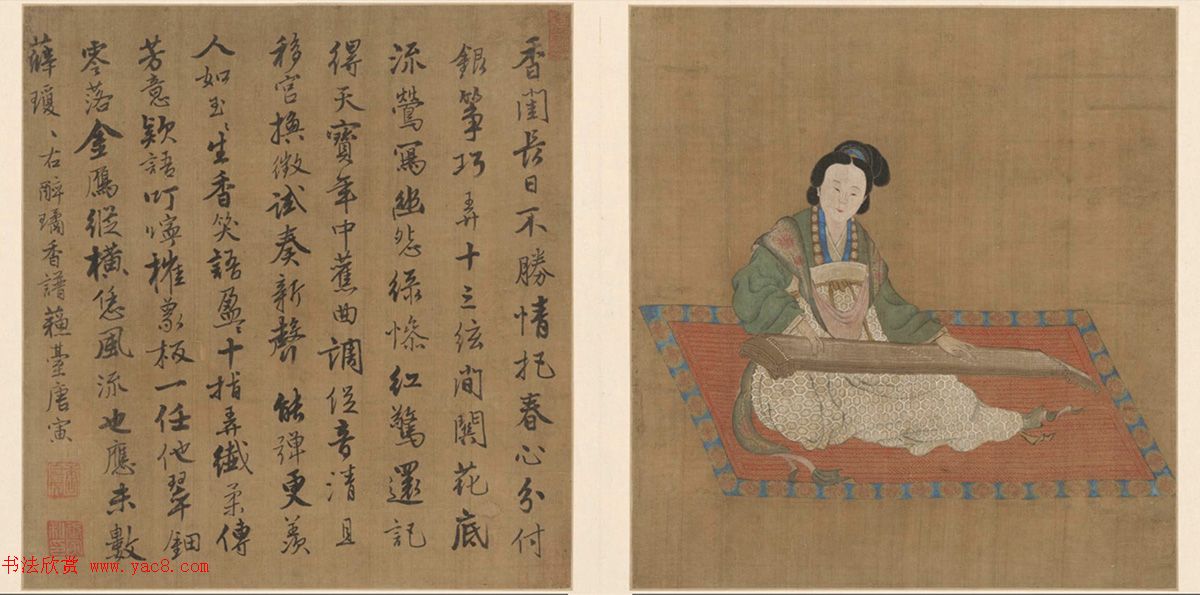 香閨長日不勝情把春心分付
銀筝巧弄十三弦間關花底
流鶯寫幽怨綠慘紅驚還記
得天寶年中舊曲調促音清且
移宮換徵試奏新聲能彈更羨
人如玉、生香笑語盈、十指弄纖柔傳
芳意欵語叮嚀摧象板一任他翠鈿
零落金鴈縱橫恁風流也應未數
薛瓊、右醉璚香譜蘓臺唐寅
书法欣赏 www.yac8.com